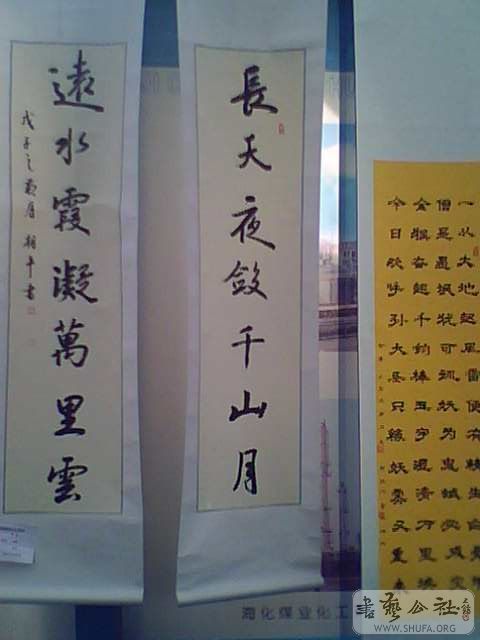 一从大地起風雷便有精生
僧是愚氓犹可训妖为鬼蜮必成災
金猴奋起千钧棒玉宇澄清万里
今日欢呼孙大圣只缘妖雾又重来
長天夜斂千山月
遠水霞凝萬里雲
海化煤业化工
書藝公社
WWW.SHUFA.ORG